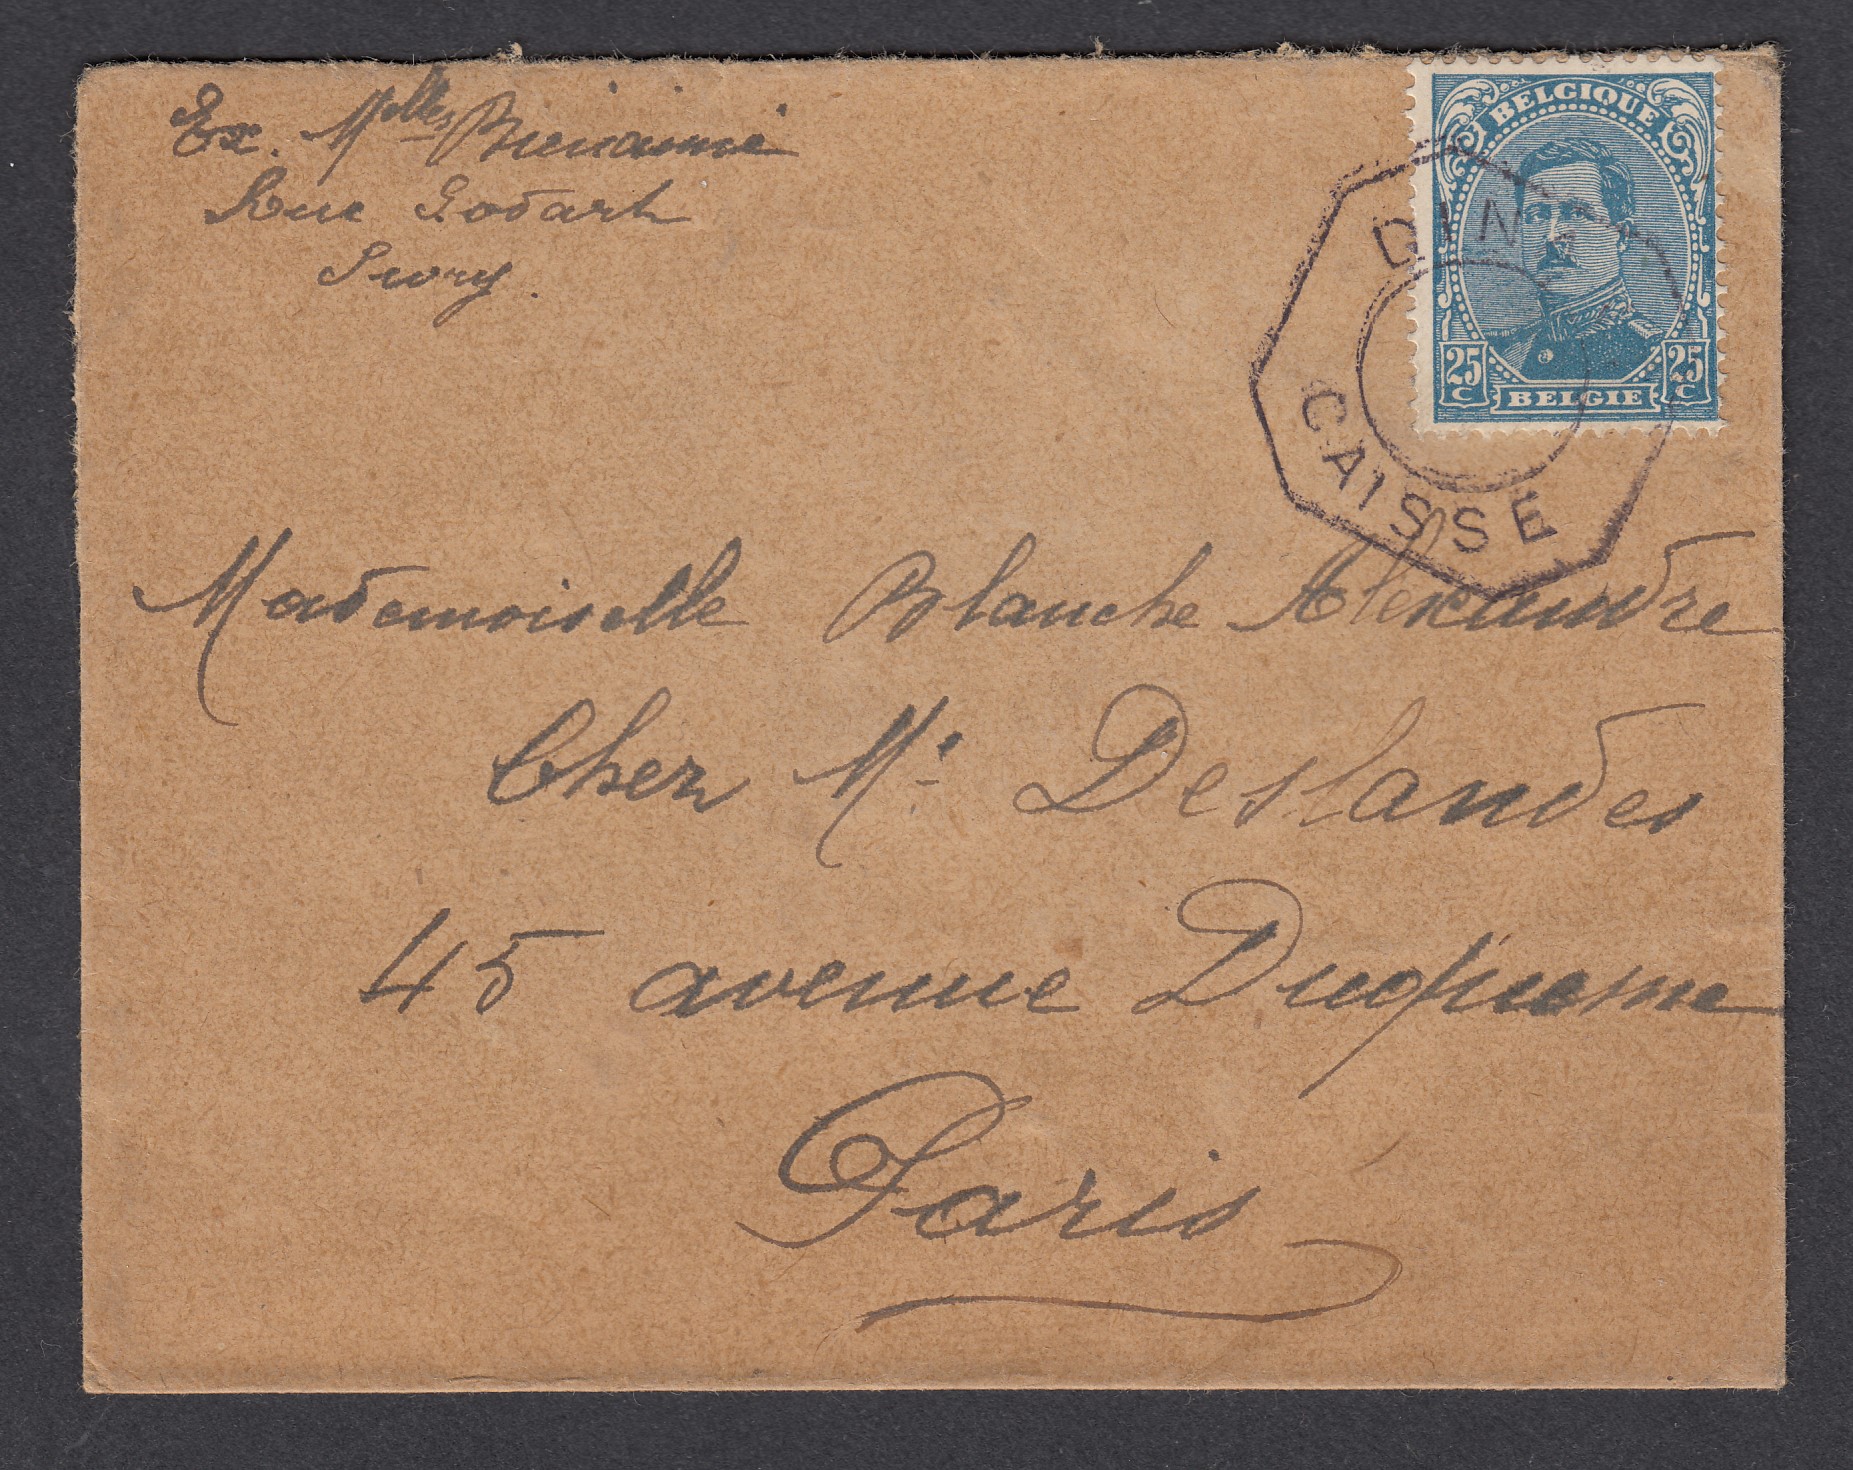 Ex. Melles Bienaimé
Rue Godart
Sivry.
BELGIQUE
DIN
25 C
25 C
BELGIE
CAISSE
Mademoiselle Blanche Alexandre
Chez Mr Deslandes
45 avenue Duquesne
Paris